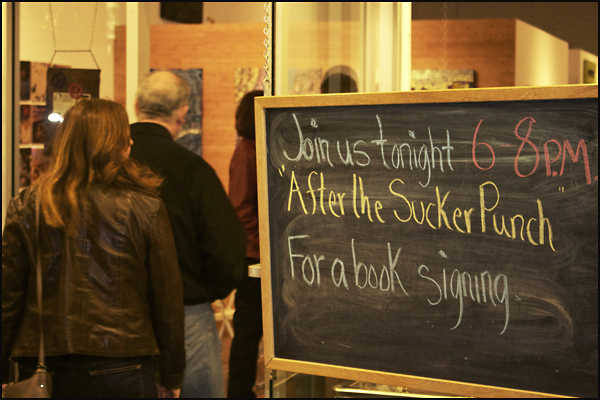 Join us tonight 6 8P.M.
"After the Sucker Punch"
For a book signing.